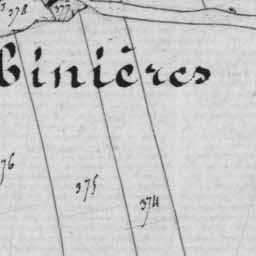 378 377
binières
76 375 374